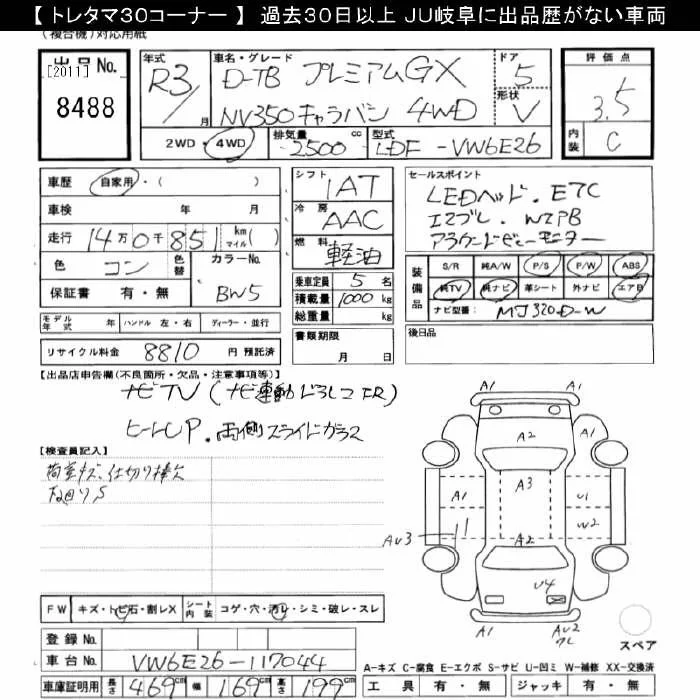 【 トレタマ30コーナー 】 過去30日以上 JU岐阜に出品歴がない車両
(複合機)対応用紙
出品No.
[2011]
8488
年式
R3/
月
車名・グレード
D-TB プレミアムGX
NV350キャラバン 4WD
ドア
5
形状
V
2WD・4WD
排気量
2500
cc
型式
LDF-VW6E26
評価点
3.5
内装
C
車歴 自家用・( )
車検 年 月
走行 14万0千851 km マイル( )
色 コン 色替 カラーNo. BW5
保証書 有・無
シフト IAT
冷房 AAC
燃料 軽油
乗車定員 5 名
積載量 1000 kg
総重量 kg
セールスポイント
LEDヘッド. ETC
エマブレ. WエアB
アラウンドビューモニター
装備品
S/R 純A/W P/S P/W ABS
純TV 純ナビ 革シート 外ナビ エアB
ナビ型番: MJ320D-W
モデル年式 年 ハンドル 左・右 ディーラー・並行
リサイクル料金 8810 円 預託済
書類期限
月 日
後日品
【出品店申告欄(不良箇所・欠品・注意事項等)】
ナビTV(ナビ連動ドラレコFR)
ヒートUP. 両側スライドガラス
【検査員記入】
荷室キズ、仕切り棒欠
下回りS
A1 A1
A2
A1 A3 U1
W2
AU3 A2
U4
A1 AU2
ワレ
スペア
FW キズ・トビ石・割レX シート内装 コゲ・穴・汚レ・シミ・破レ・スレ
登録No.
車台No. VW6E26-117044
車庫証明用 長さ 469 cm 幅 169 cm 高さ 199 cm
A―キズ C―腐食 E―エクボ S―サビ U―凹ミ W―補修 XX―交換済
工具 有・無 ジャッキ 有・無